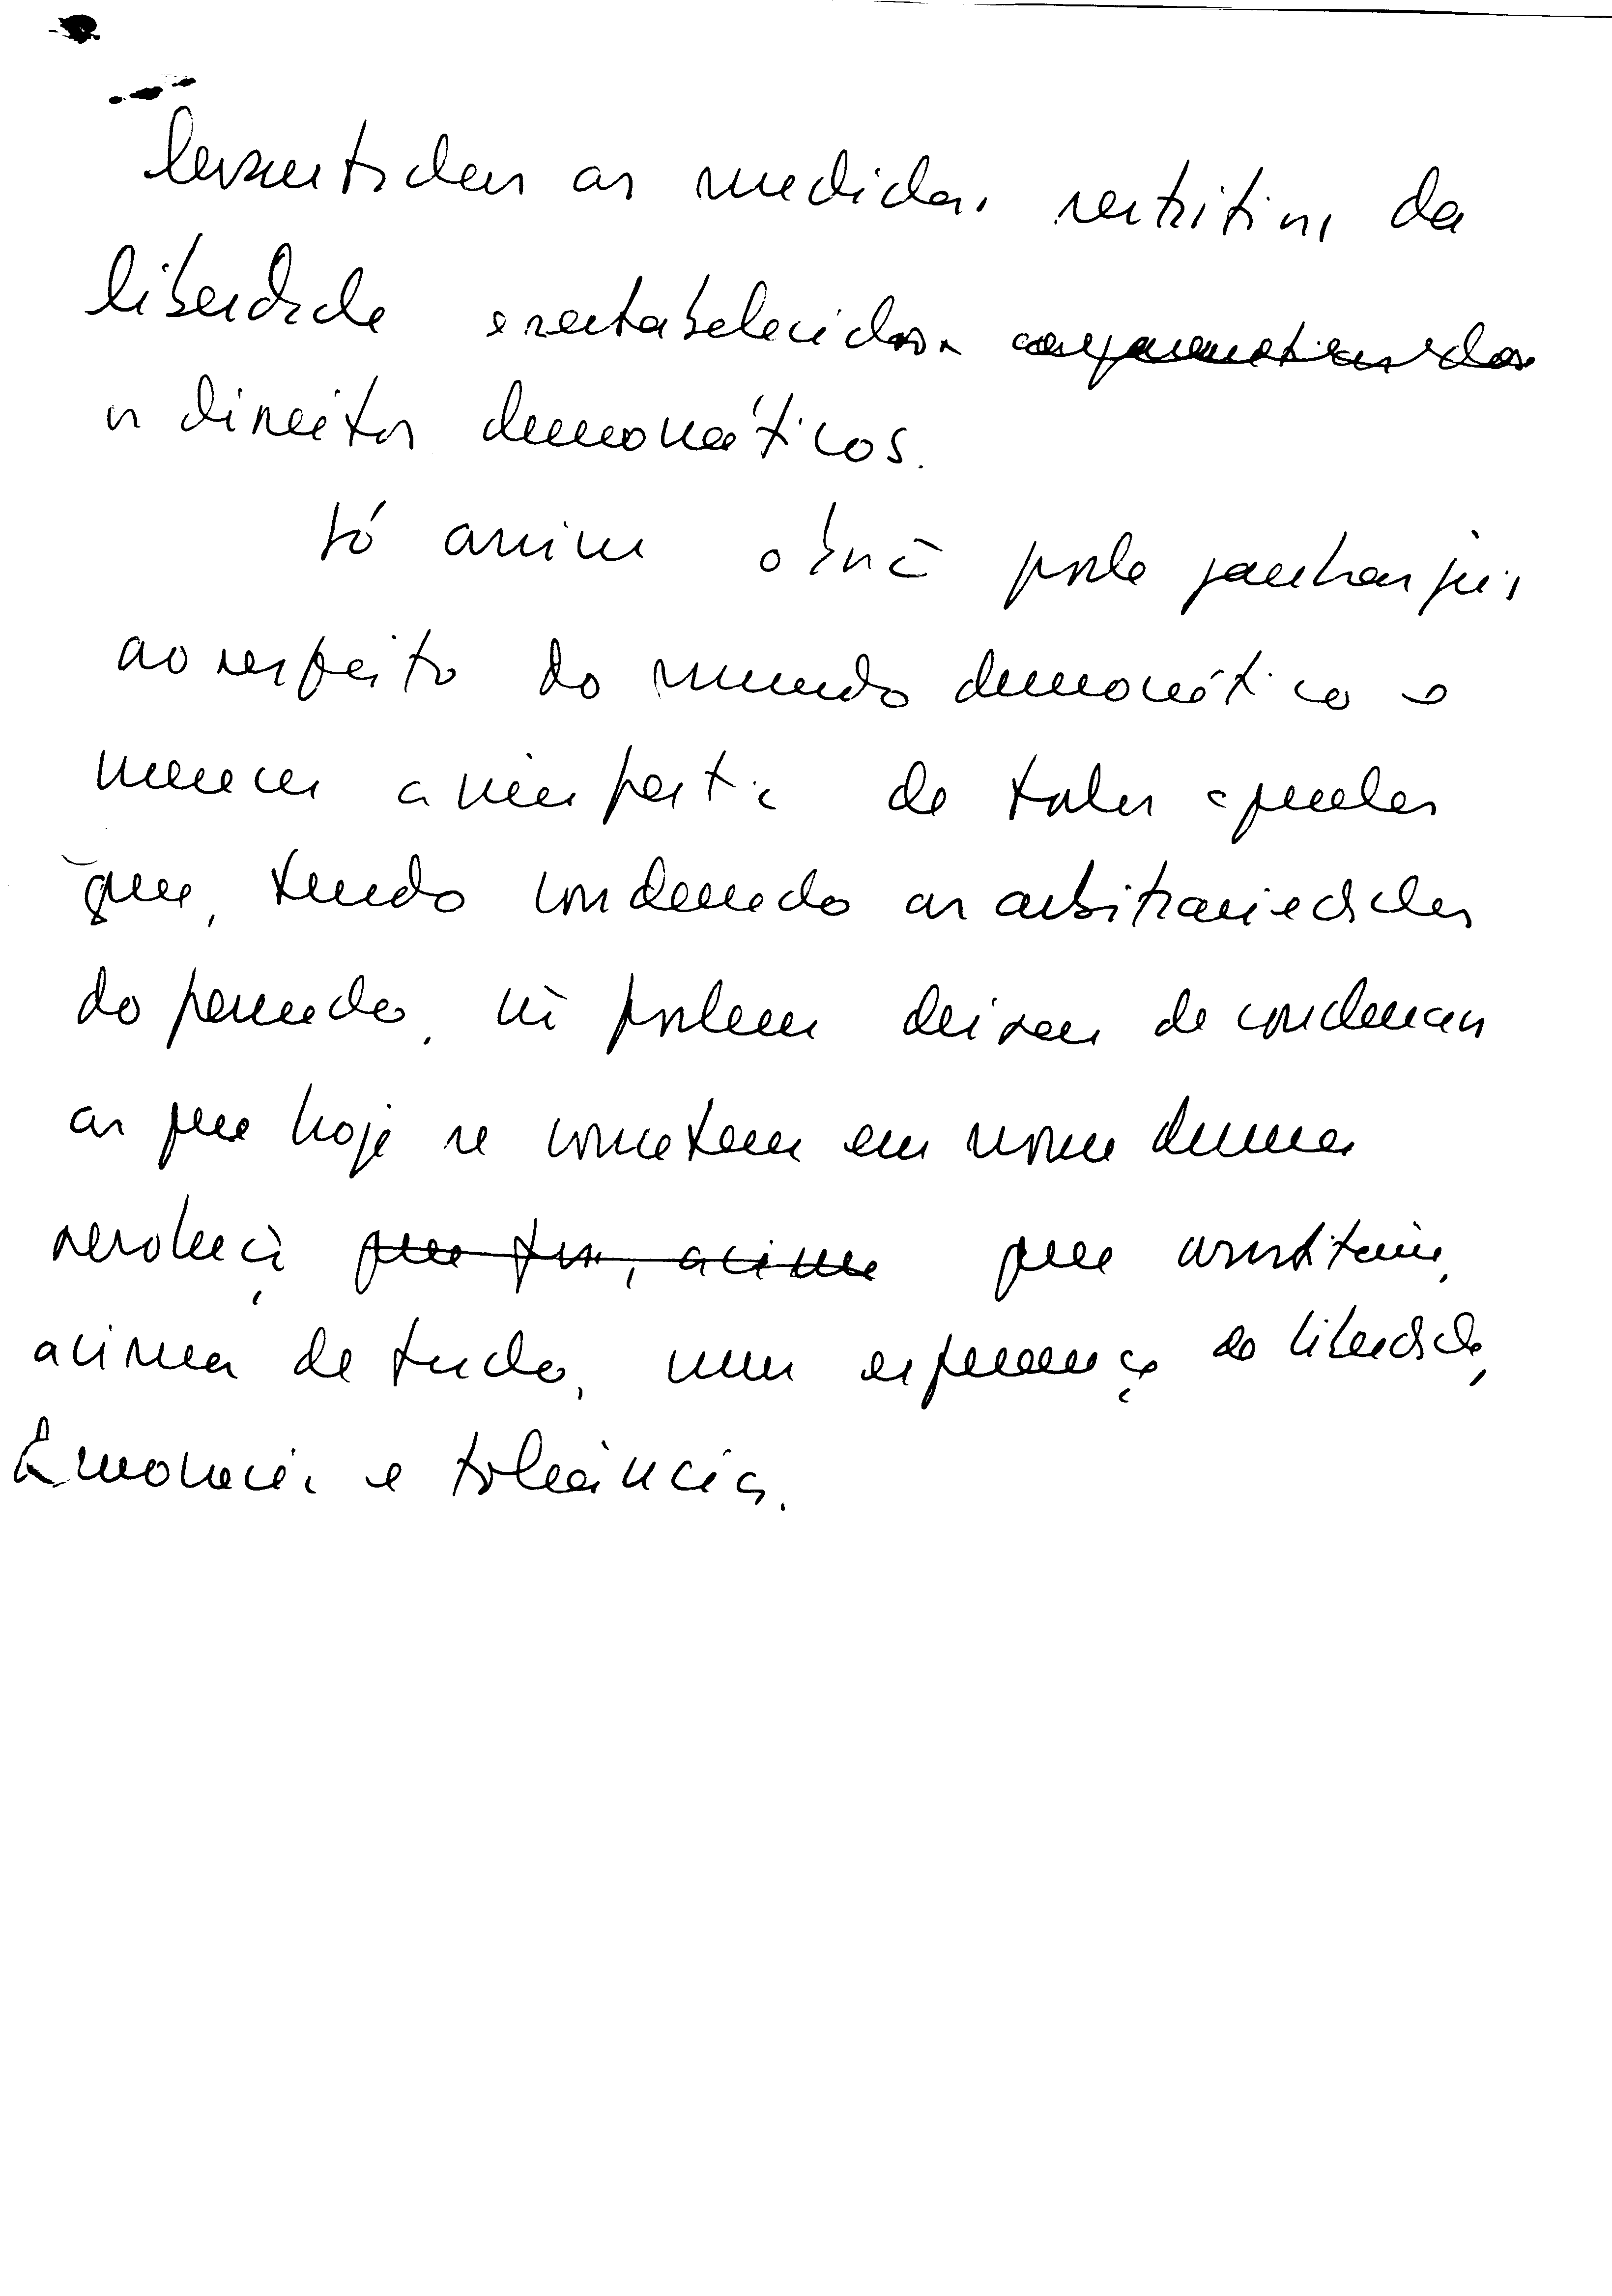 levantadas as medidas restritivas da
liberdade e restabelecidos
os direitos democráticos.
Só assim o Irã pode fazer jus
ao respeito do mundo democrático e
merecer a simpatia de todos aqueles
que, tendo condenado as arbitrariedades
do passado, não podem deixar de condenar
as que hoje se cometem em nome duma
revolução que fora, acima que constituiu,
acima de tudo, uma esperança de liberdade,
democracia e tolerância.